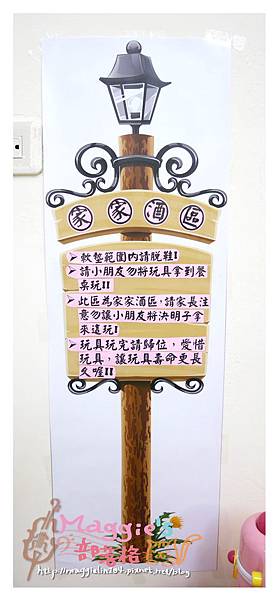 家家酒區
➤軟墊範圍內請脫鞋!
➤請小朋友勿將玩具拿到餐
桌玩!!
➤此區為家家酒區，請家長注
意勿讓小朋友將決明子拿
來這玩!
➤玩具玩完請歸位，愛惜
玩具，讓玩具壽命更長
久喔!!
Maggie's
部落格
http://maggielin204.pixnet.net/blog